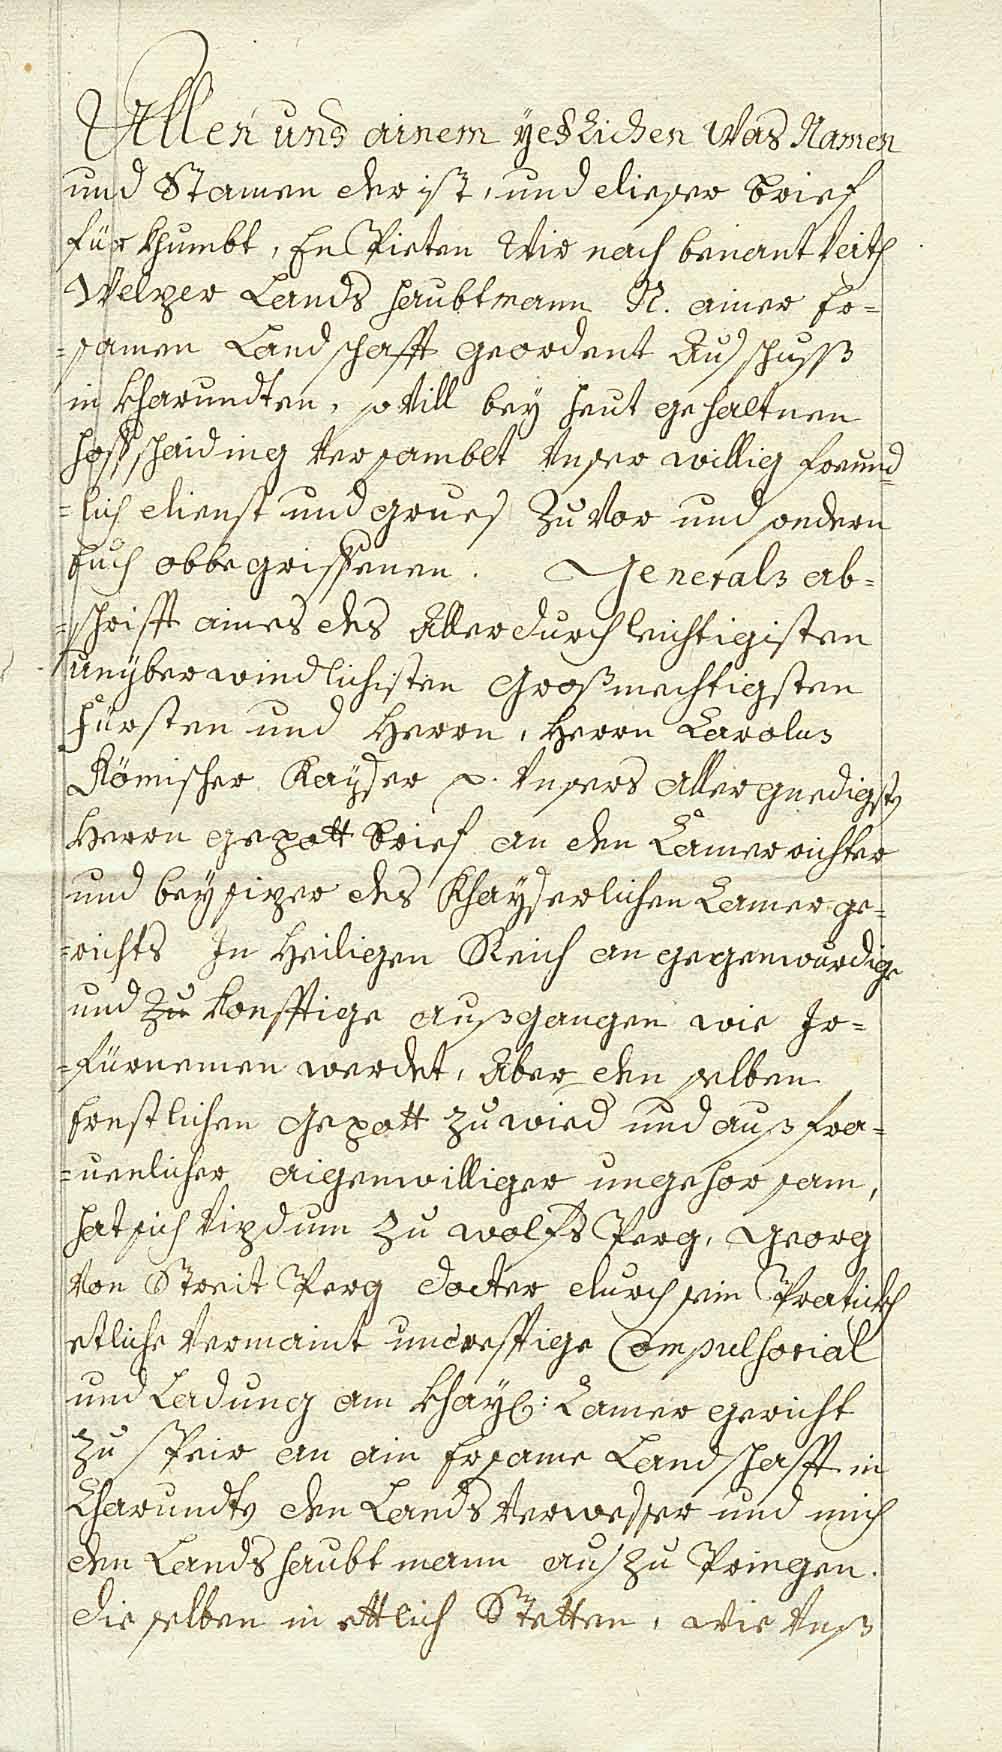 Allen und ainem yedlichen Was Namen
und Stamen der ist, und dieser brief
für khumbt, EnPieten Wir nach benant Veith
Welzer Lands haubtmann N. ainer Er=
=samen Landschafft geordent Ausschuss
in kharndten, so Vill bey heut gehaltnen
hoffthaiding Versamblt Unser willig freund
=lich dienst und grues Zu Vor und sondern
Euch obbegriffenen. Generals ab=
=schrifft aines des Allerdurchleichtigisten
unyberwindlichisten Großmechtigsten
Fürsten und Herrn, Herrn Carolus
Römischer Kayser p. Unsers Allergnedigsten
Herrn gepott brief an den Camerrichter
und beysizer des Khayserlichen Camerge=
=richts In Heiligen Reich an gegenwürdige
und Zu konfftige außgangen wie Ir=
=fürnemen werdet, Aber den selben
Ernstlichen gepott zuwid und auß fra=
=uenlicher aigenwilliger ungehorsam,
hat sich Vizdum Zu wolfsPerg, Georg
Von StreitPerg docter durch sein Pratickh
etliche Vermaint uncrefftige Compulsorial
und Ladung am khayl: Camer gericht
Zu speir an ain Ersame Landschafft in
Kharndtn den Lands Verweser und mich
den Landshaubtmann aus zu Pringen.
dieselben in ettlich Stetten, wie Unß